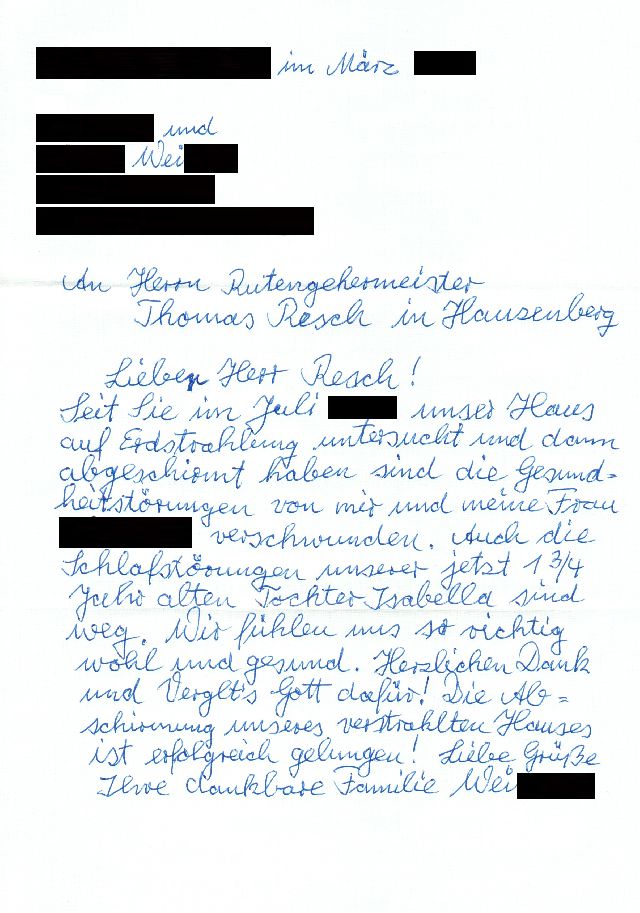 im März
und
Wei
An Herrn Rutengehermeister
Thomas Resch in Hauzenberg
Lieber Herr Resch!
Seit Sie im Juli unser Haus
auf Erdstrahlung untersucht und dann
abgeschirmt haben sind die Gesund=
heitstörungen von mir und meine Frau
verschwunden. Auch die
Schlafstörungen unserer jetzt 1 3/4
Jahr alten Tochter Isabella sind
weg. Wir fühlen uns so richtig
wohl und gesund. Herzlichen Dank
und Verglt's Gott dafür! Die Ab=
schirmung unseres verstrahlten Hauses
ist erfolgreich gelungen! Liebe Grüße
Ihre dankbare Familie Wei